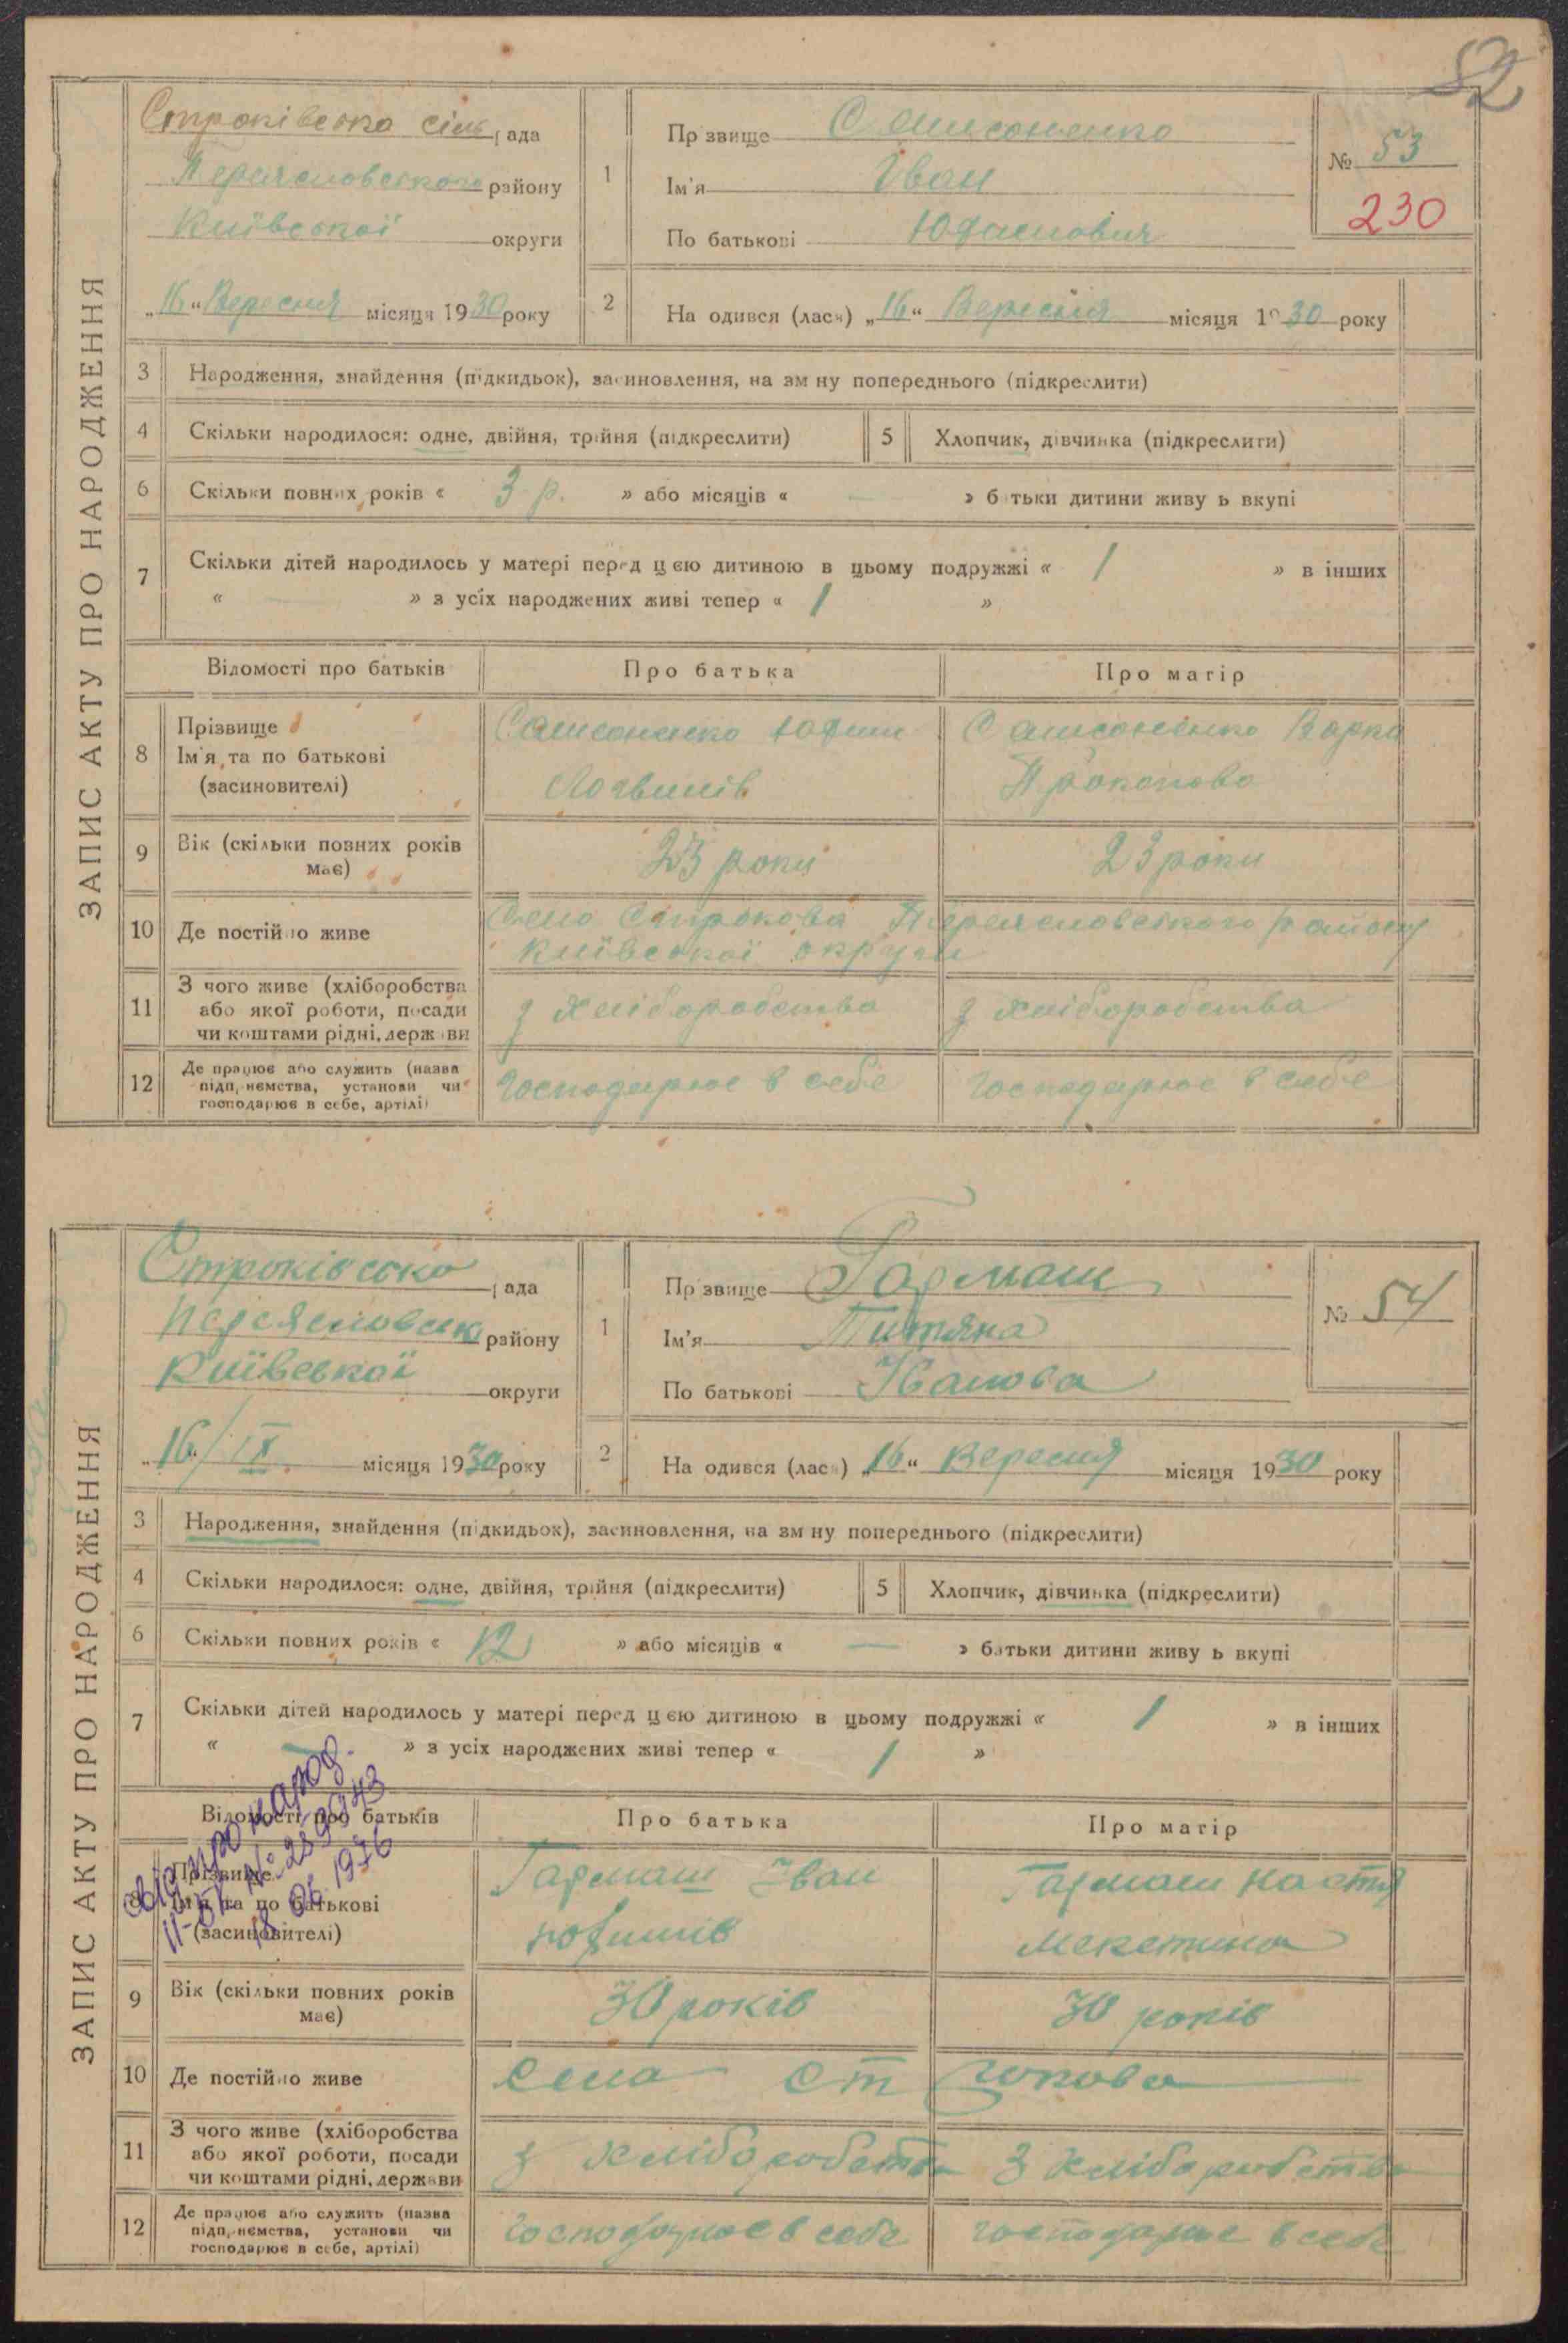 52
ЗАПИС АКТУ ПРО НАРОДЖЕННЯ
Строківська сіль рада
Переяславського району
Київської округи
„16“ Вересня місяця 1930 року
1
Прізвище Самсоненко
Ім'я Іван
По батькові
№ 53
230
2 Народився (лася) „16“ Вересня місяця 1930 року
3 Народження, знайдення (підкидьок), засиновлення, на зміну попереднього (підкреслити)
4 Скільки народилося: одне, двійня, трійня (підкреслити)
5 Хлопчик, дівчинка (підкреслити)
6 Скільки повних років « 3 р. » або місяців « — » батьки дитини живуть вкупі
7 Скільки дітей народилось у матері перед цією дитиною в цьому подружжі « 1 » в інших
« — » з усіх народжених живі тепер « 1 »
Відомості про батьків Про батька Про матір
8 Прізвище
Ім'я та по батькові
(засиновителі)
Самсоненко
Логвинів
Самсоненко Варка
Прокопова
9 Вік (скільки повних років
має)
23 роки
23 роки
10 Де постійно живе
Село Строкова Переяславського району
Київської округи
11 З чого живе (хліборобства
або якої роботи, посади
чи коштами рідні, держави
з хліборобства
з хліборобства
12 Де працює або служить (назва
підприємства, установи чи
господарює в себе, артілі)
Господарює в себе
Господарює в себе
ЗАПИС АКТУ ПРО НАРОДЖЕННЯ
Строківська рада
району
Київської округи
„16“/IX місяця 1930 року
1
Прізвище Гармаш
Ім'я Титяна
По батькові Іванова
№ 54
2 Народився (лася) „16“ Вересня місяця 1930 року
3 Народження, знайдення (підкидьок), засиновлення, на зміну попереднього (підкреслити)
4 Скільки народилося: одне, двійня, трійня (підкреслити)
5 Хлопчик, дівчинка (підкреслити)
6 Скільки повних років « 12 » або місяців « — » батьки дитини живуть вкупі
7 Скільки дітей народилось у матері перед цією дитиною в цьому подружжі « 1 » в інших
« — » з усіх народжених живі тепер « 1 »
Відомості про батьків Про батька Про матір
8 Прізвище
Ім'я та по батькові
(засиновителі)
Гармаш Іван
Гармаш Настя
9 Вік (скільки повних років
має)
30 років
30 років
10 Де постійно живе
Села Строкова
11 З чого живе (хліборобства
або якої роботи, посади
чи коштами рідні, держави
з хліборобства
З хліборобства
12 Де працює або служить (назва
підприємства, установи чи
господарює в себе, артілі)
Господарює в себе
господарює в себе